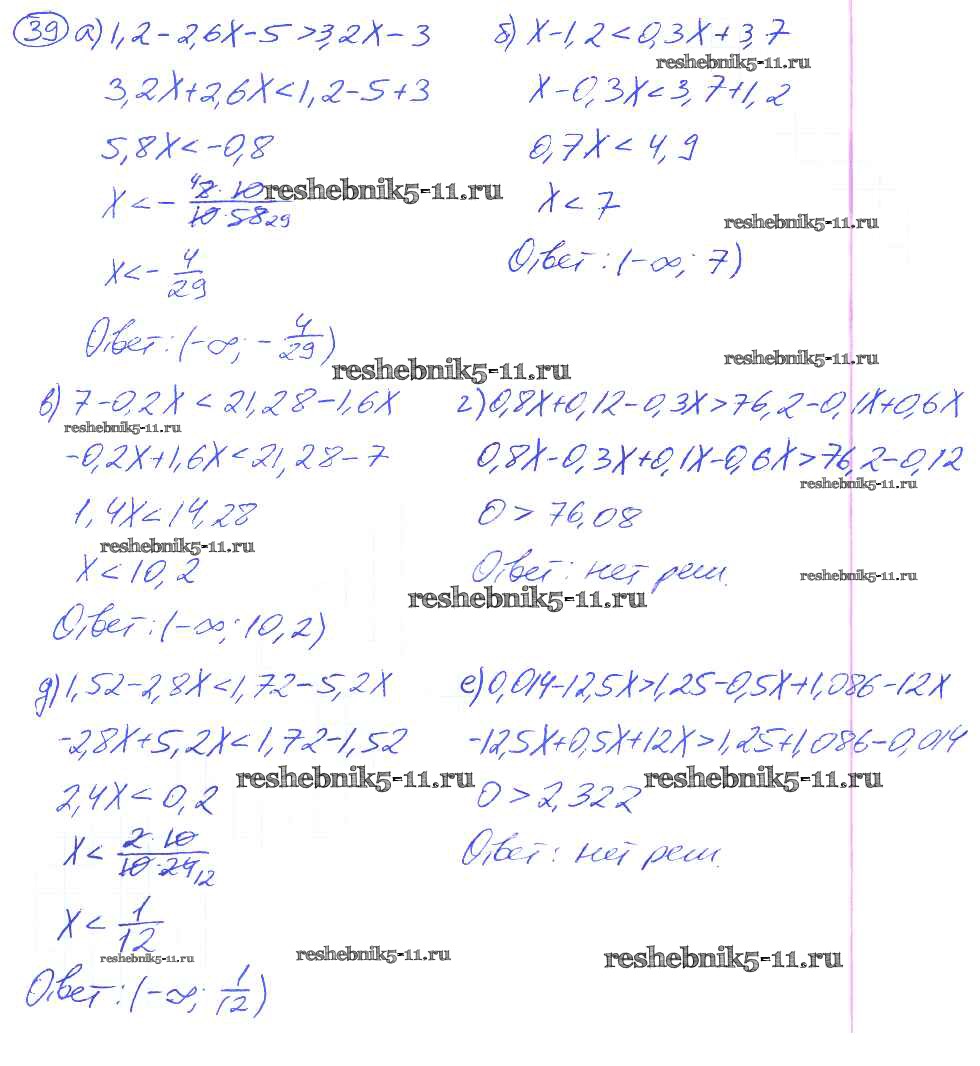 39 а) 1,2 - 2,6x - 5 > 3,2x - 3
3,2x + 2,6x < 1,2 - 5 + 3
5,8x < -0,8
x < - 4 8 · 10 / 10 · 58 29
reshebnik5-11.ru
x < - 4/29
Ответ: (-∞; - 4/29)
reshebnik5-11.ru
б) x - 1,2 < 0,3x + 3,7
reshebnik5-11.ru
x - 0,3x < 3,7 + 1,2
0,7x < 4,9
x < 7
reshebnik5-11.ru
Ответ: (-∞; 7)
reshebnik5-11.ru
в) 7 - 0,2x < 21,28 - 1,6x
reshebnik5-11.ru
-0,2x + 1,6x < 21,28 - 7
1,4x < 14,28
reshebnik5-11.ru
x < 10,2
Ответ: (-∞; 10,2)
г) 0,8x + 0,12 - 0,3x > 76,2 - 0,1x + 0,6x
0,8x - 0,3x + 0,1x - 0,6x > 76,2 - 0,12
reshebnik5-11.ru
0 > 76,08
Ответ: нет реш.
reshebnik5-11.ru
reshebnik5-11.ru
д) 1,52 - 2,8x < 1,72 - 5,2x
-2,8x + 5,2x < 1,72 - 1,52
reshebnik5-11.ru
2,4x < 0,2
x < 2 · 10 / 10 · 24 12
x < 1/12
reshebnik5-11.ru
Ответ: (-∞; 1/12)
е) 0,014 - 12,5x > 1,25 - 0,5x + 1,086 - 12x
-12,5x + 0,5x + 12x > 1,25 + 1,086 - 0,014
reshebnik5-11.ru
0 > 2,322
Ответ: нет реш.
reshebnik5-11.ru
reshebnik5-11.ru